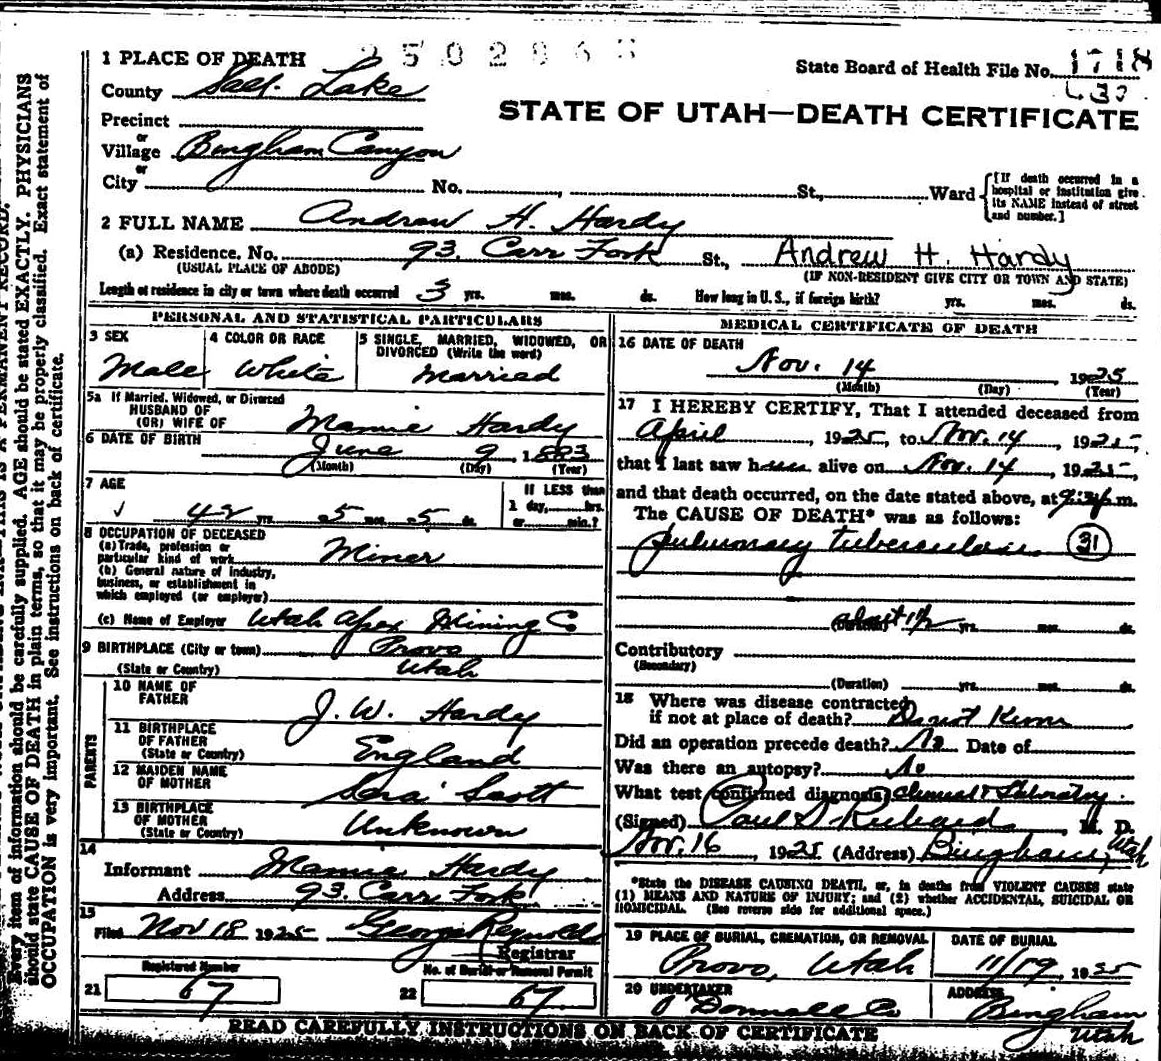 1 PLACE OF DEATH
State Board of Health File No. 1718
County Salt Lake
STATE OF UTAH—DEATH CERTIFICATE
Precinct
or
Village Bingham Canyon
or
City No. , St., Ward
[If death occurred in a hospital or institution give its NAME instead of street and number.]
2 FULL NAME Andrew H. Hardy
(a) Residence. No. 93. Carr Fork St., Andrew H. Hardy
(USUAL PLACE OF ABODE) (IF NON-RESIDENT GIVE CITY OR TOWN AND STATE)
Length of residence in city or town where death occurred 3 yrs. mos. ds. How long in U. S., if foreign birth? yrs. mos. ds.
PERSONAL AND STATISTICAL PARTICULARS
3 SEX Male
4 COLOR OR RACE White
5 SINGLE, MARRIED, WIDOWED, OR DIVORCED (Write the word) Married
5a If Married, Widowed, or Divorced
HUSBAND OF
(OR) WIFE OF Mamie Hardy
6 DATE OF BIRTH June 9, 1883
(Month) (Day) (Year)
7 AGE
42 yrs. 5 mos. 5 ds.
If LESS than
1 day, hrs.
or min.?
8 OCCUPATION OF DECEASED
(a) Trade, profession or
particular kind of work Miner
(b) General nature of industry,
business, or establishment in
which employed (or employer)
(c) Name of Employer Utah Apex Mining Co
9 BIRTHPLACE (City or town) Provo
(State or Country) Utah
PARENTS
10 NAME OF
FATHER J. W. Hardy
11 BIRTHPLACE
OF FATHER
(State or Country) England
12 MAIDEN NAME
OF MOTHER Scott
13 BIRTHPLACE
OF MOTHER
(State or Country) Unknown
14
Informant Mamie Hardy
Address 93. Carr Fork
15
Filed Nov 18 1925 George Reynolds
Registrar
Registered Number
21 67
No. of Burial or Removal Permit
22 67.
MEDICAL CERTIFICATE OF DEATH
16 DATE OF DEATH
Nov. 14 1925
(Month) (Day) (Year)
17 I HEREBY CERTIFY, That I attended deceased from
April , 1925, to Nov. 14, 1925,
that I last saw h alive on Nov. 14, 1925,
and that death occurred, on the date stated above, at m.
The CAUSE OF DEATH* was as follows:
Pulmonary Tuberculosis 31
(Duration) about 1½ yrs. mos. ds.
Contributory
(Secondary)
(Duration) yrs. mos. ds.
18 Where was disease contracted
if not at place of death? Do not Know
Did an operation precede death? No Date of
Was there an autopsy? No
What test confirmed diagnosis? Clinical & Laboratory
(Signed) Paul S. Richards, M. D.
Nov. 16, 1925 (Address) Bingham, Utah
*State the DISEASE CAUSING DEATH, or, in deaths from VIOLENT CAUSES state
(1) MEANS AND NATURE OF INJURY; and (2) whether ACCIDENTAL, SUICIDAL OR
HOMICIDAL. (See reverse side for additional space.)
19 PLACE OF BURIAL, CREMATION, OR REMOVAL
Provo, Utah
DATE OF BURIAL
11/19 1925
20 UNDERTAKER
ADDRESS
Bingham
Utah
READ CAREFULLY INSTRUCTIONS ON BACK OF CERTIFICATE
Every item of information should be carefully supplied. AGE should be stated EXACTLY. PHYSICIANS
should state CAUSE OF DEATH in plain terms, so that it may be properly classified. Exact statement of
OCCUPATION is very important. See instructions on back of certificate.